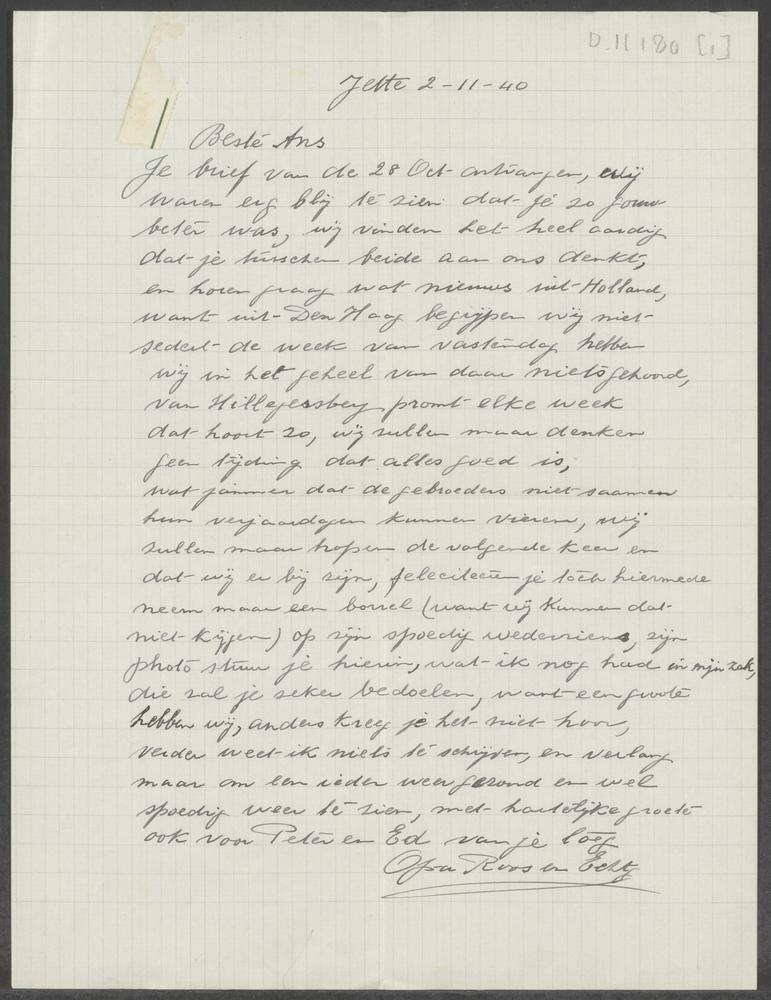 D.11180 [1]
Jette 2-11-40
Beste Ans
Je brief van de 28 Oct ontvangen, wij
waren erg blij te zien dat je zo gouw
beter was, wij vinden het heel aardig
dat je tusschen beide aan ons denkt,
en horen graag wat nieuws uit Holland,
want uit Den Haag begrijpen wij niet
sedert de week van vastendag hebben
wij in het geheel van daar niets gehoord,
van Hillegersberg promt elke week
dat hoort zo, wij sullen maar denken
geen tijding dat alles goed is,
wat jammer dat de gebroeders niet saamen
hun verjaardagen kunnen vieren, wij
sullen maar hopen de volgende keer en
dat wij er bij zijn, feleciteere je toch hiermede
neem maar een borrel (want wij kunnen dat
niet krijgen) op zijn spoedig wederziens, zijn
photo stuur je hierin, wat ik nog had in mijn zak,
die zal je zeker bedoelen, want een groote
hebben wij, anders kreeg je het niet hoor,
verder weet ik niets te schrijven, en verlang
maar om een ieder weer gezond en wel
spoedig weer te zien, met hartelijke groete
ook voor Peter en Ed van je
Opa Roos en